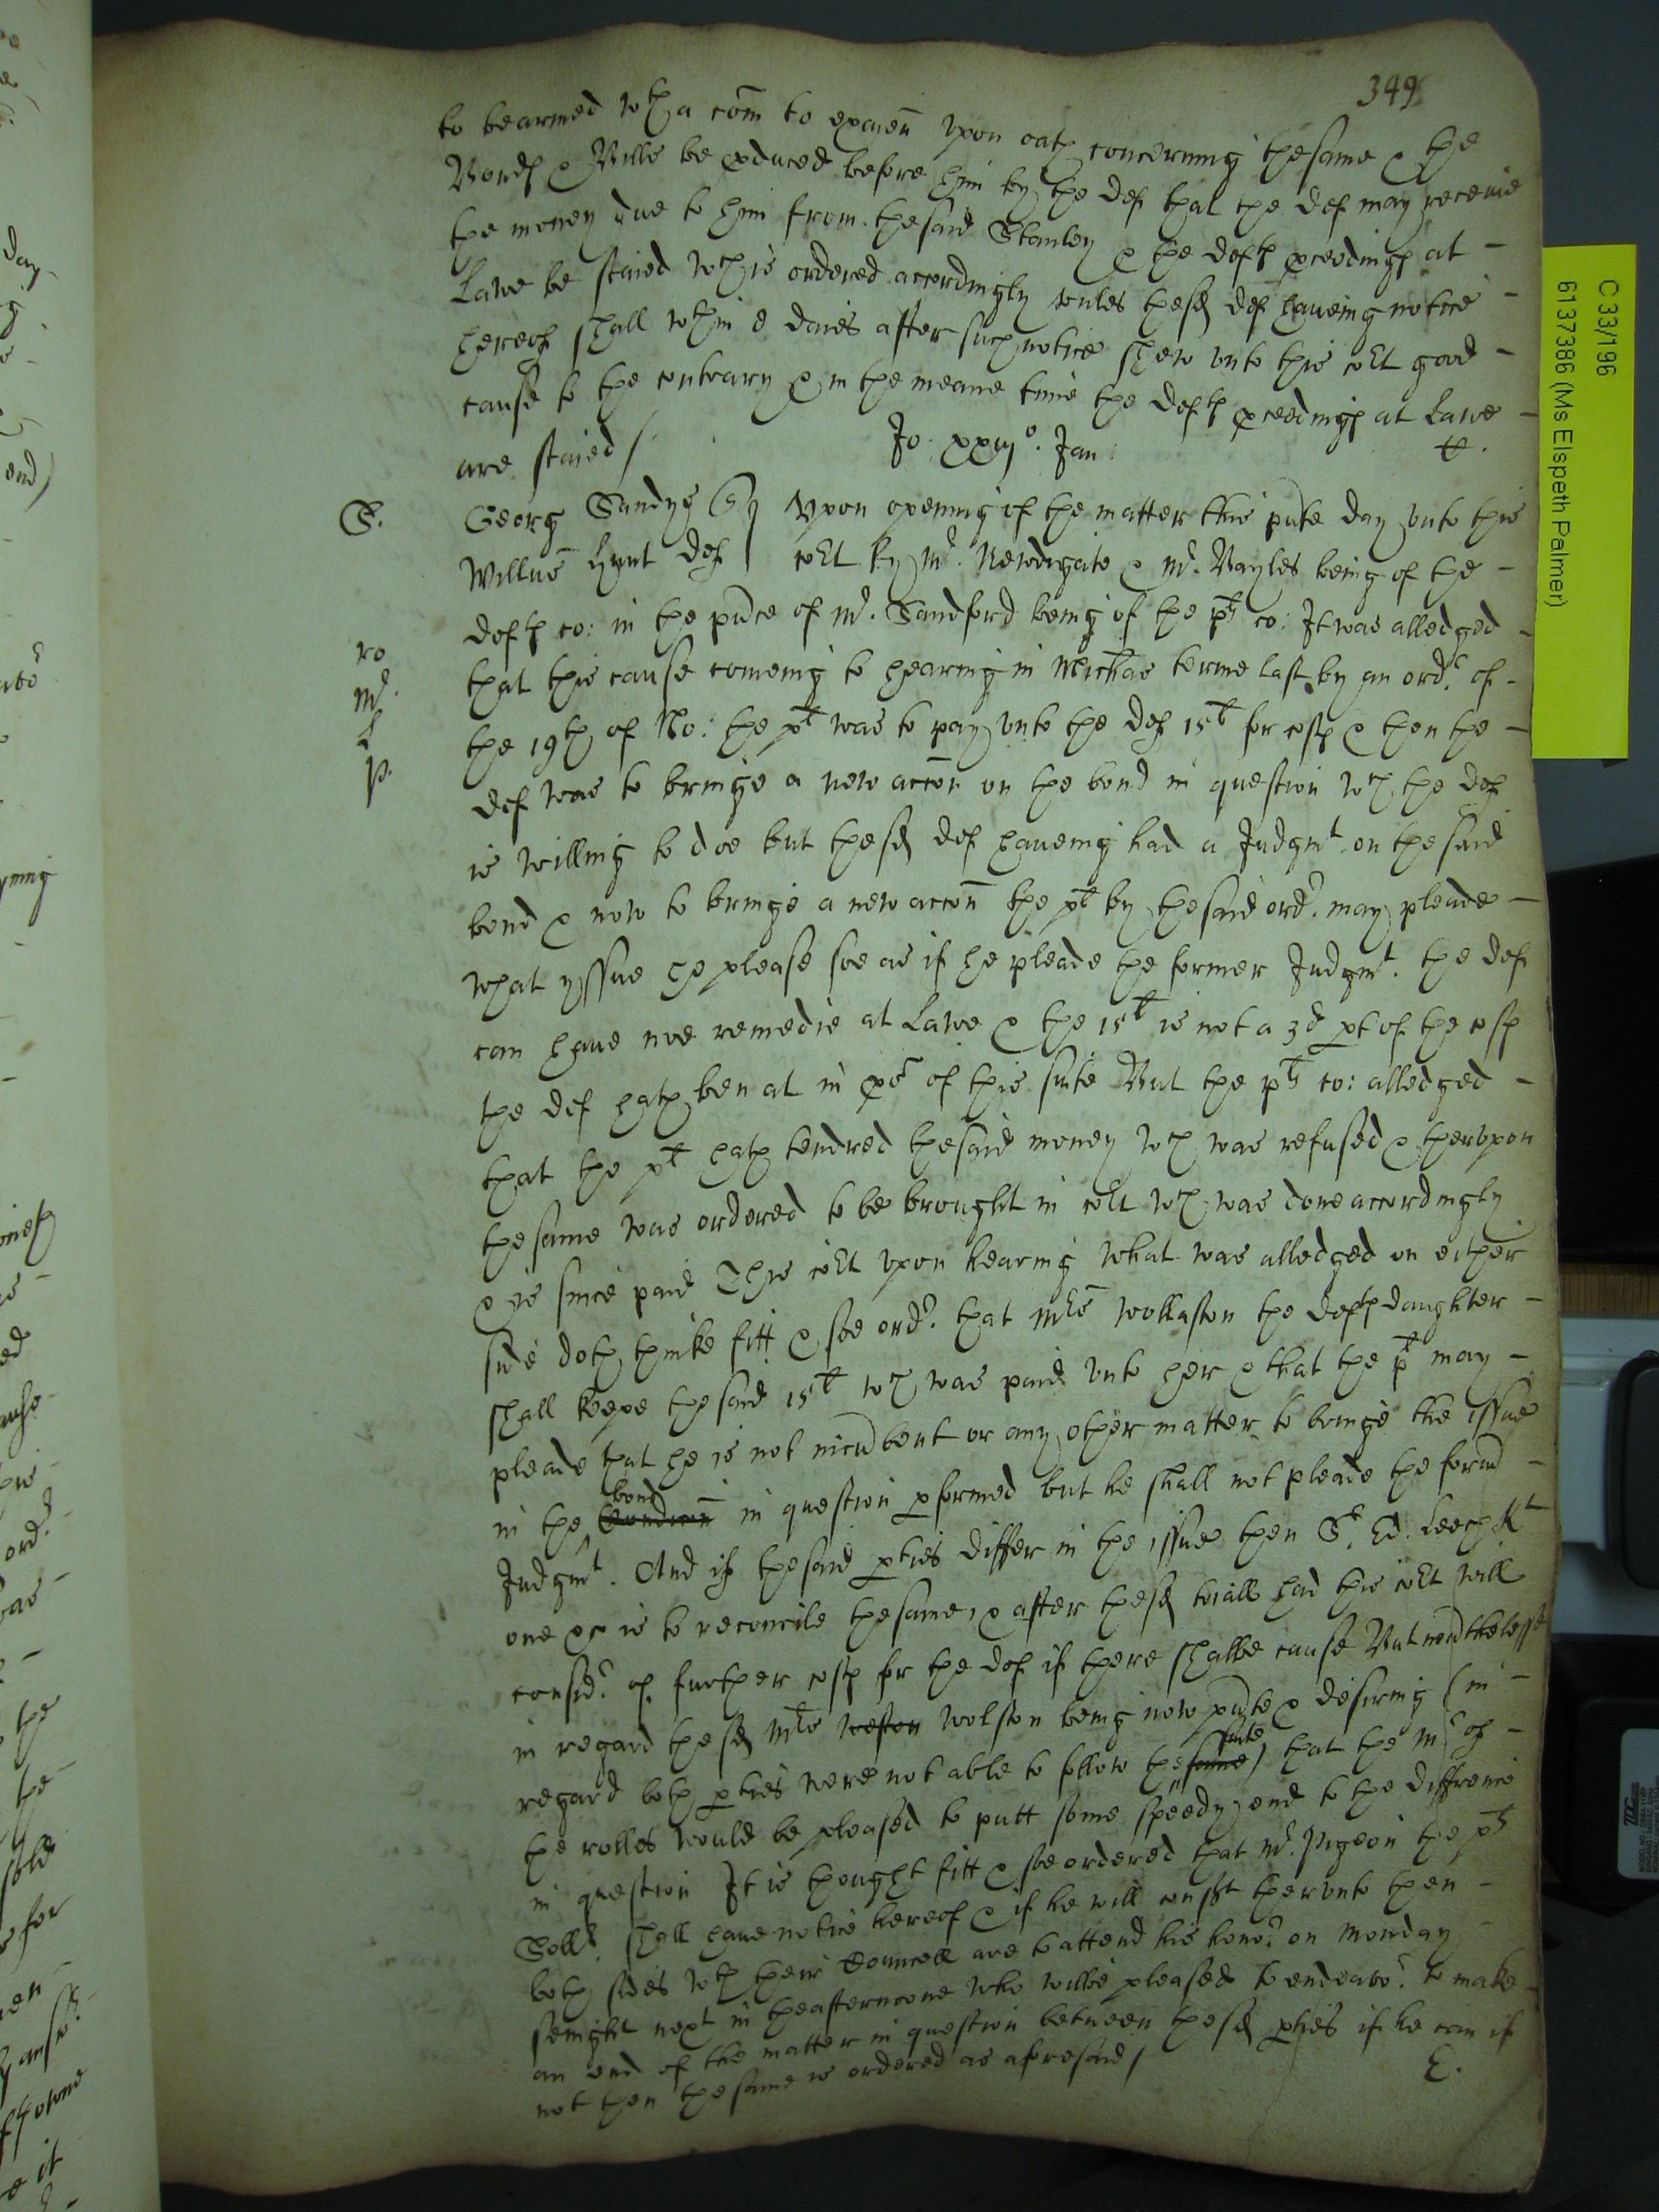 349
to bearmed wth a com̄ to exaiēn vpon oath concerning thesame & the
Bonds & Bills be pduced before him by the def that the def may receive
the money due to him from thesaid Stanley & the defts pceedings at
Lawe be staied wch is ordered accordingly vnles thesd def haveing notice
hereof shall wthin 8 daies after such notice shew vnto this cort good
cause to the contrary & in the meane time the defts pceedings at Lawe
are staied / Jo: xxiijo. Jan: t.
S. Georg Sandys Esq Vpon opening of the matter this pnte day vnto this
Willūs Hunt def cort by Mr. Newdigate & Mr. Bayles being of the
defts co: in the pnce of Mr. Sandford being of the plts co: It was alledged
ro that this cause comeing to hearing in Michas terme last by an ordr. of
Mr. the 19th of No: the plt was to pay vnto the def 15l for costs & then the
L def was to bringe a new accon̄ on the bond in question wch the def
p. is willing to doe but thesd def haveing had a Judgmt on thesaid
bond & now to bringe a new accon̄ the plt by thesaid ordr. may pleade
what yssue he please soe as if he pleade the former Judgmt. the def
can have noe remedie at Lawe & the 15l is not a 3d pt of the costs
the def hath ben at in psec̄ of this suite But the plts co: alledged
that the plt hath tendred thesaid money wch was refused & thervpon
thesame was ordered to be brought in cort wch was done accordingly
& is since paid This cort vpon hearing what was alledged on either
side doth thinke fitt & soe ordr. that Mris Wollaston the defts daughter
shall keepe thesaid 15l wch was paid vnto her & that the plt may
pleade that he is not incūbent or any other matter to bringe the issue
in the condicon̄ bond in question pformed but he shall not pleade the formr
Judgmt. And if thesaid pties differ in the issue then Sr. Ed: Leech Kt
one &c is to reconcile thesame, & after thesd triall had this cort will
considr. of further costs for the def if there shalbe cause But nevrthelesse
in regard thesd Mris Weston Wolston being now pnte & desiring (in
regard both pties were not able to follow thesame suite) that the Mr of
the rolles would be pleased to putt some speedy end to the diffrence
in question It is thought fitt & soe ordered that Mr. Pigeon the plts
Sollr. shall have notice hereof & if he will consent thervnto then
both sides wth their Councell are to attend his honor. on Monday
senight next in theafternoone who wilbe pleased to endeavor. to make
an end of the matter in question between thesd pties if he can if
not then thesame is ordered as aforesaid / E.
C 33/196
6137386 (Ms Elspeth Palmer)